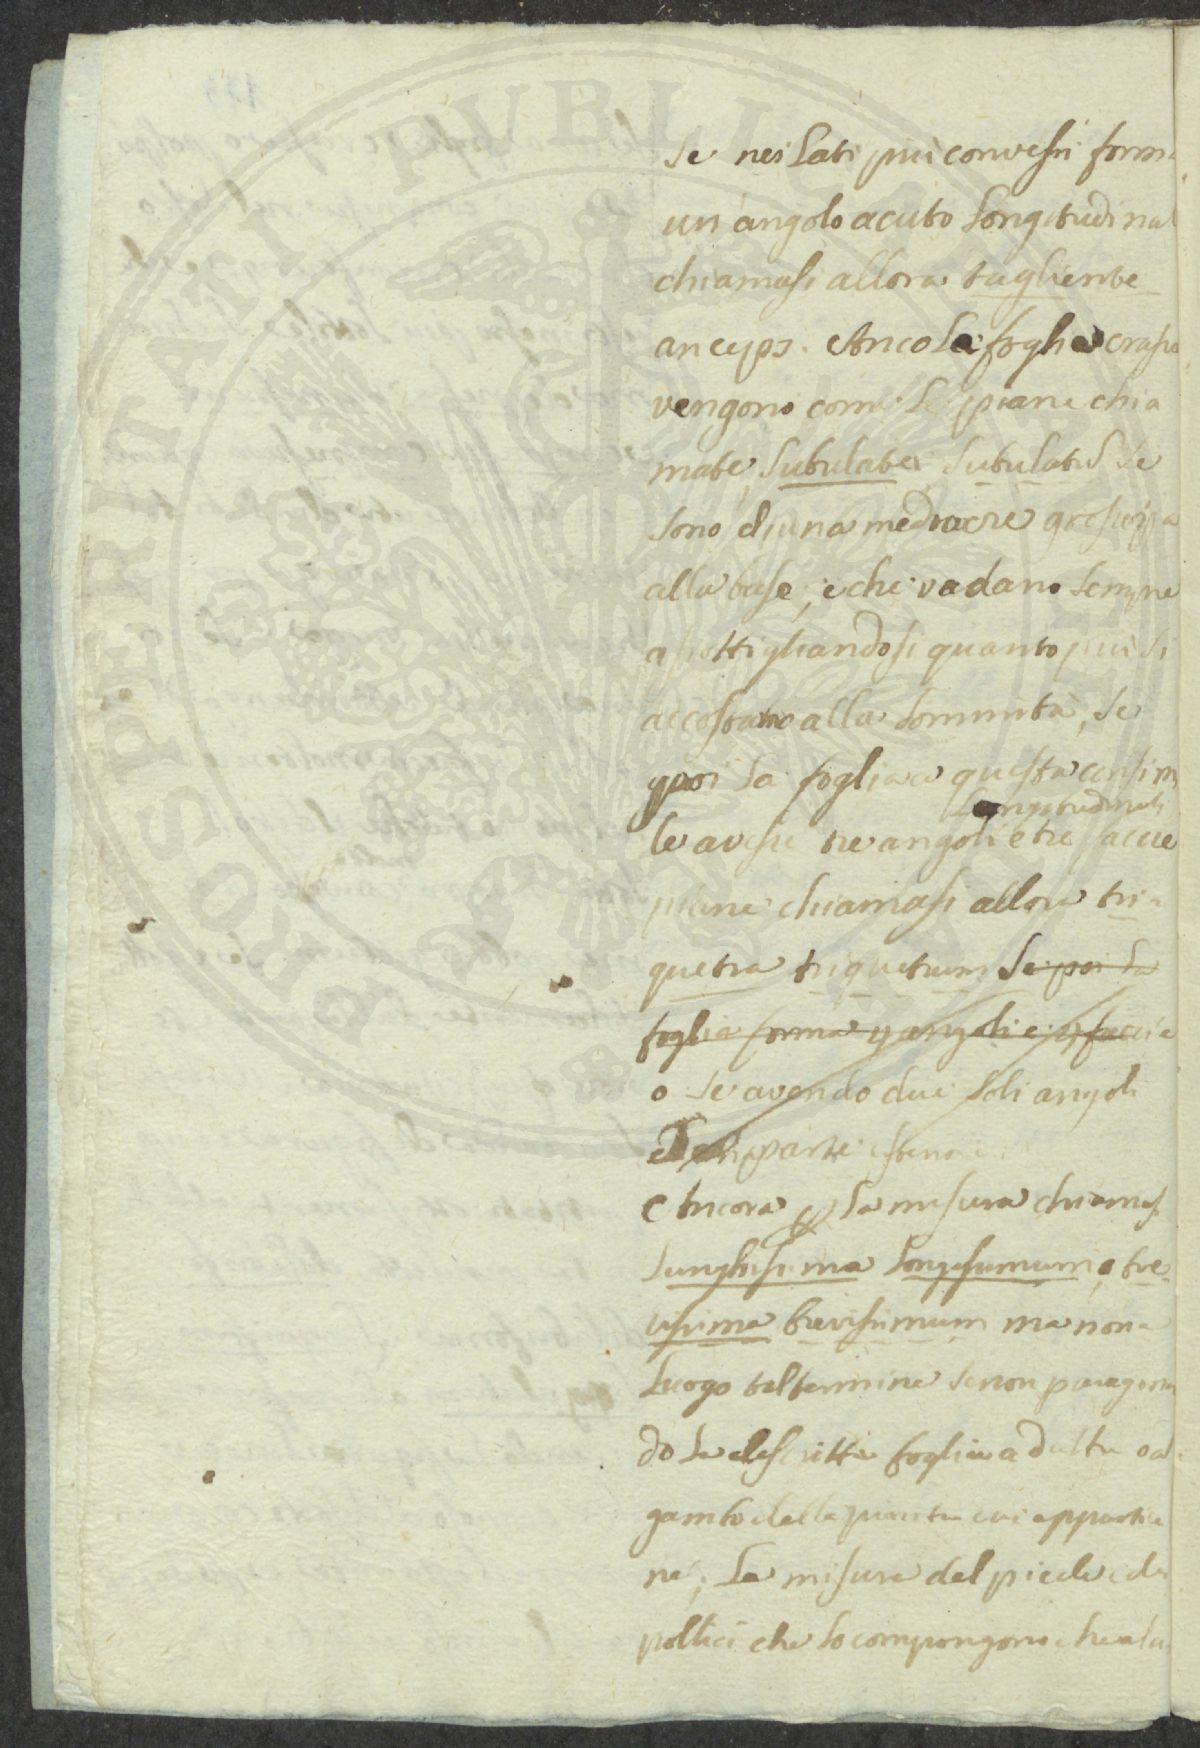 se nei lati più convessi form
un angolo acuto longitudinal
chiamasi allora tagliente
anceps. Anco le foglie crasse
vengono come le piane chia
mate subulate, subulatus se
sono di una mediocre grossezza
alla base, e che vadano sempre
assottigliandosi quanto più si
accostano alla sommità, se
poi la foglia a questa consim
longitudinali
le avesse tre angoli e tre faccie
piane chiamasi allora tri
quetra triquetrum se poi la
foglia forma angoli e faccie
o se avendo due soli angoli
parte
e ancora la misura chiamasi
lunghissima longissimum, o bre
vissima brevissimum ma non a
luogo tal termine se non paragonan
do la descritta foglia ad altra o al
gambo della pianta cui appartie
ne; La misura del piede e dei
pollici che lo compongono